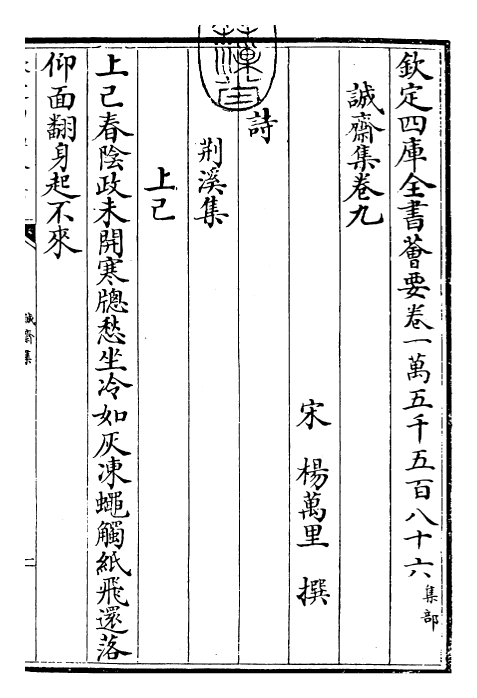 欽定四庫全書薈要卷一萬五千五百八十六集部
誠齋集卷九
宋楊萬里撰
詩
荆溪集
上己
上己春陰政未開寒牕愁坐冷如灰凍蠅觸紙飛還落
仰面翻身起不來
誠齋集